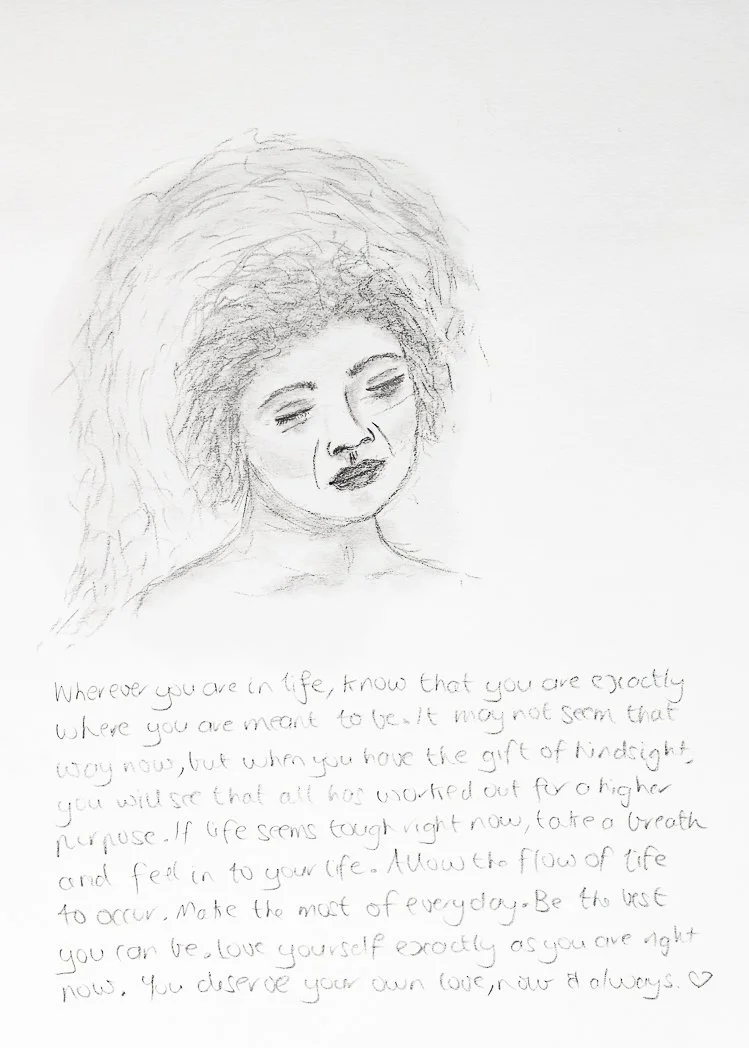 Wherever you are in life, know that you are exactly
where you are meant to be. It may not seem that
way now, but when you have the gift of hindsight,
you will see that all has worked out for a higher
purpose. If life seems tough right now, take a breath
and feel in to your life. Allow the flow of life
to occur. Make the most of everyday. Be the best
you can be. love yourself exactly as you are right
now. You deserve your own love, now & always. ♡